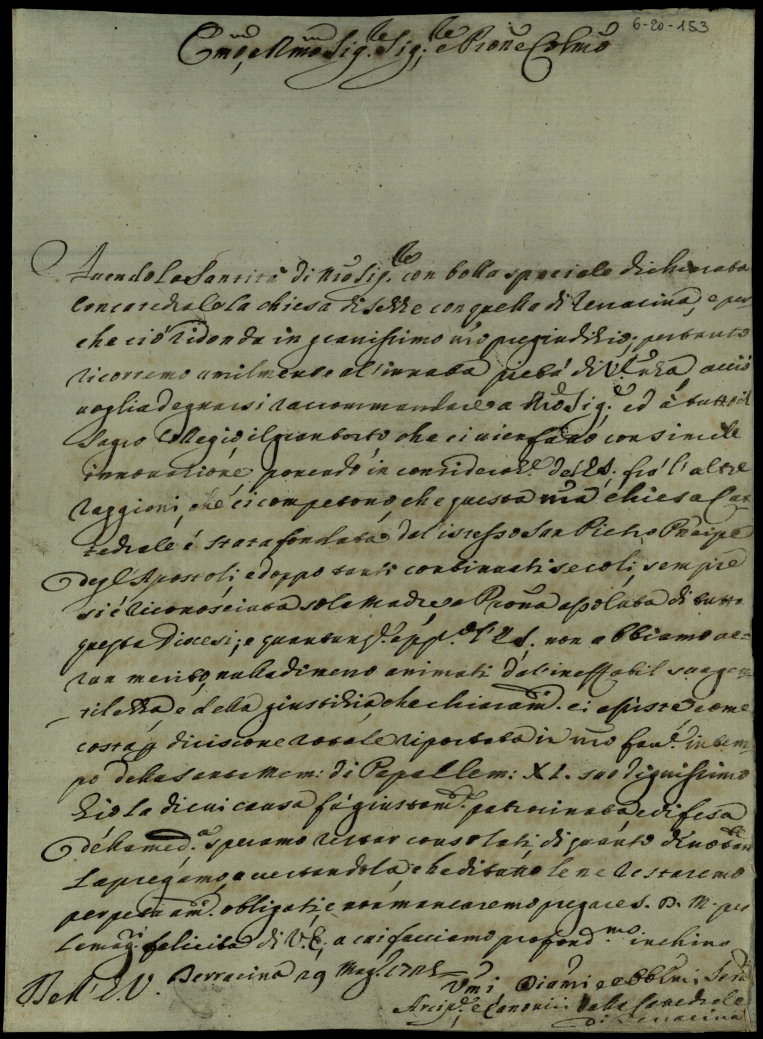 6-20-153
Em̃o, e Rm̃o Sig.re Sig.re e Pron̄e Colm̃o
Avendo la Santità di Nr̃o Sig.re con bolla speciale dichiarata
Concatedrale la chiesa di Sezze con quella di Terracina, e per
che ciò ridonda in gravissimo nr̃o pregiudizio; pertanto
ricorremo umilmente al innata pietà di V. Em̃za, acciò
voglia degnarsi raccommandare a Nr̃o Sig.re ed à tutto il
Sagro Collegio il gran torto che ci vien fatto con simile
innovazione, ponendo in consideraz.e dell' frà l'altre
raggioni, che ci competono, che questa nr̃a chiesa Cat
tedrale è stata fondata dal istesso San Pietro Prencipe
degl'Apostoli, e doppo tanti continuati secoli, sempre
si è riconosciuta sola Madre, e Pron̄a assoluta di tutta
questa Diocesi; e quantunq.e app.o l' non abbiamo al-
cun merito, nulladimeno animati dal'ineffabil sua gen
tilezza, e della giustizia, che chiaram.te ci assiste, come
costa p̱ dicisione rotale riportata in nr̃o fav.e in tem-
po della santa Mem: di Papa Clem: XI. suo dignissimo
Zio la di cui causa fù giustam.te patrocinata e difesa
dell'amed.a speramo restar consolati, di quanto divotam.te
la pregamo, accertandola, che di tanto le ne restaremo
perpetuam.te obligati, e non mancaremo pregare S. D. M. per
le magi felicità di V. E., a cui facciamo profond.mo inchino
Dell' E. V. Terracina 29 Mag.o
Vm̃i Div̄mi, e obblm̃i Ser.i
Arcip.e, e Canonici della Catedrale
di Terracina